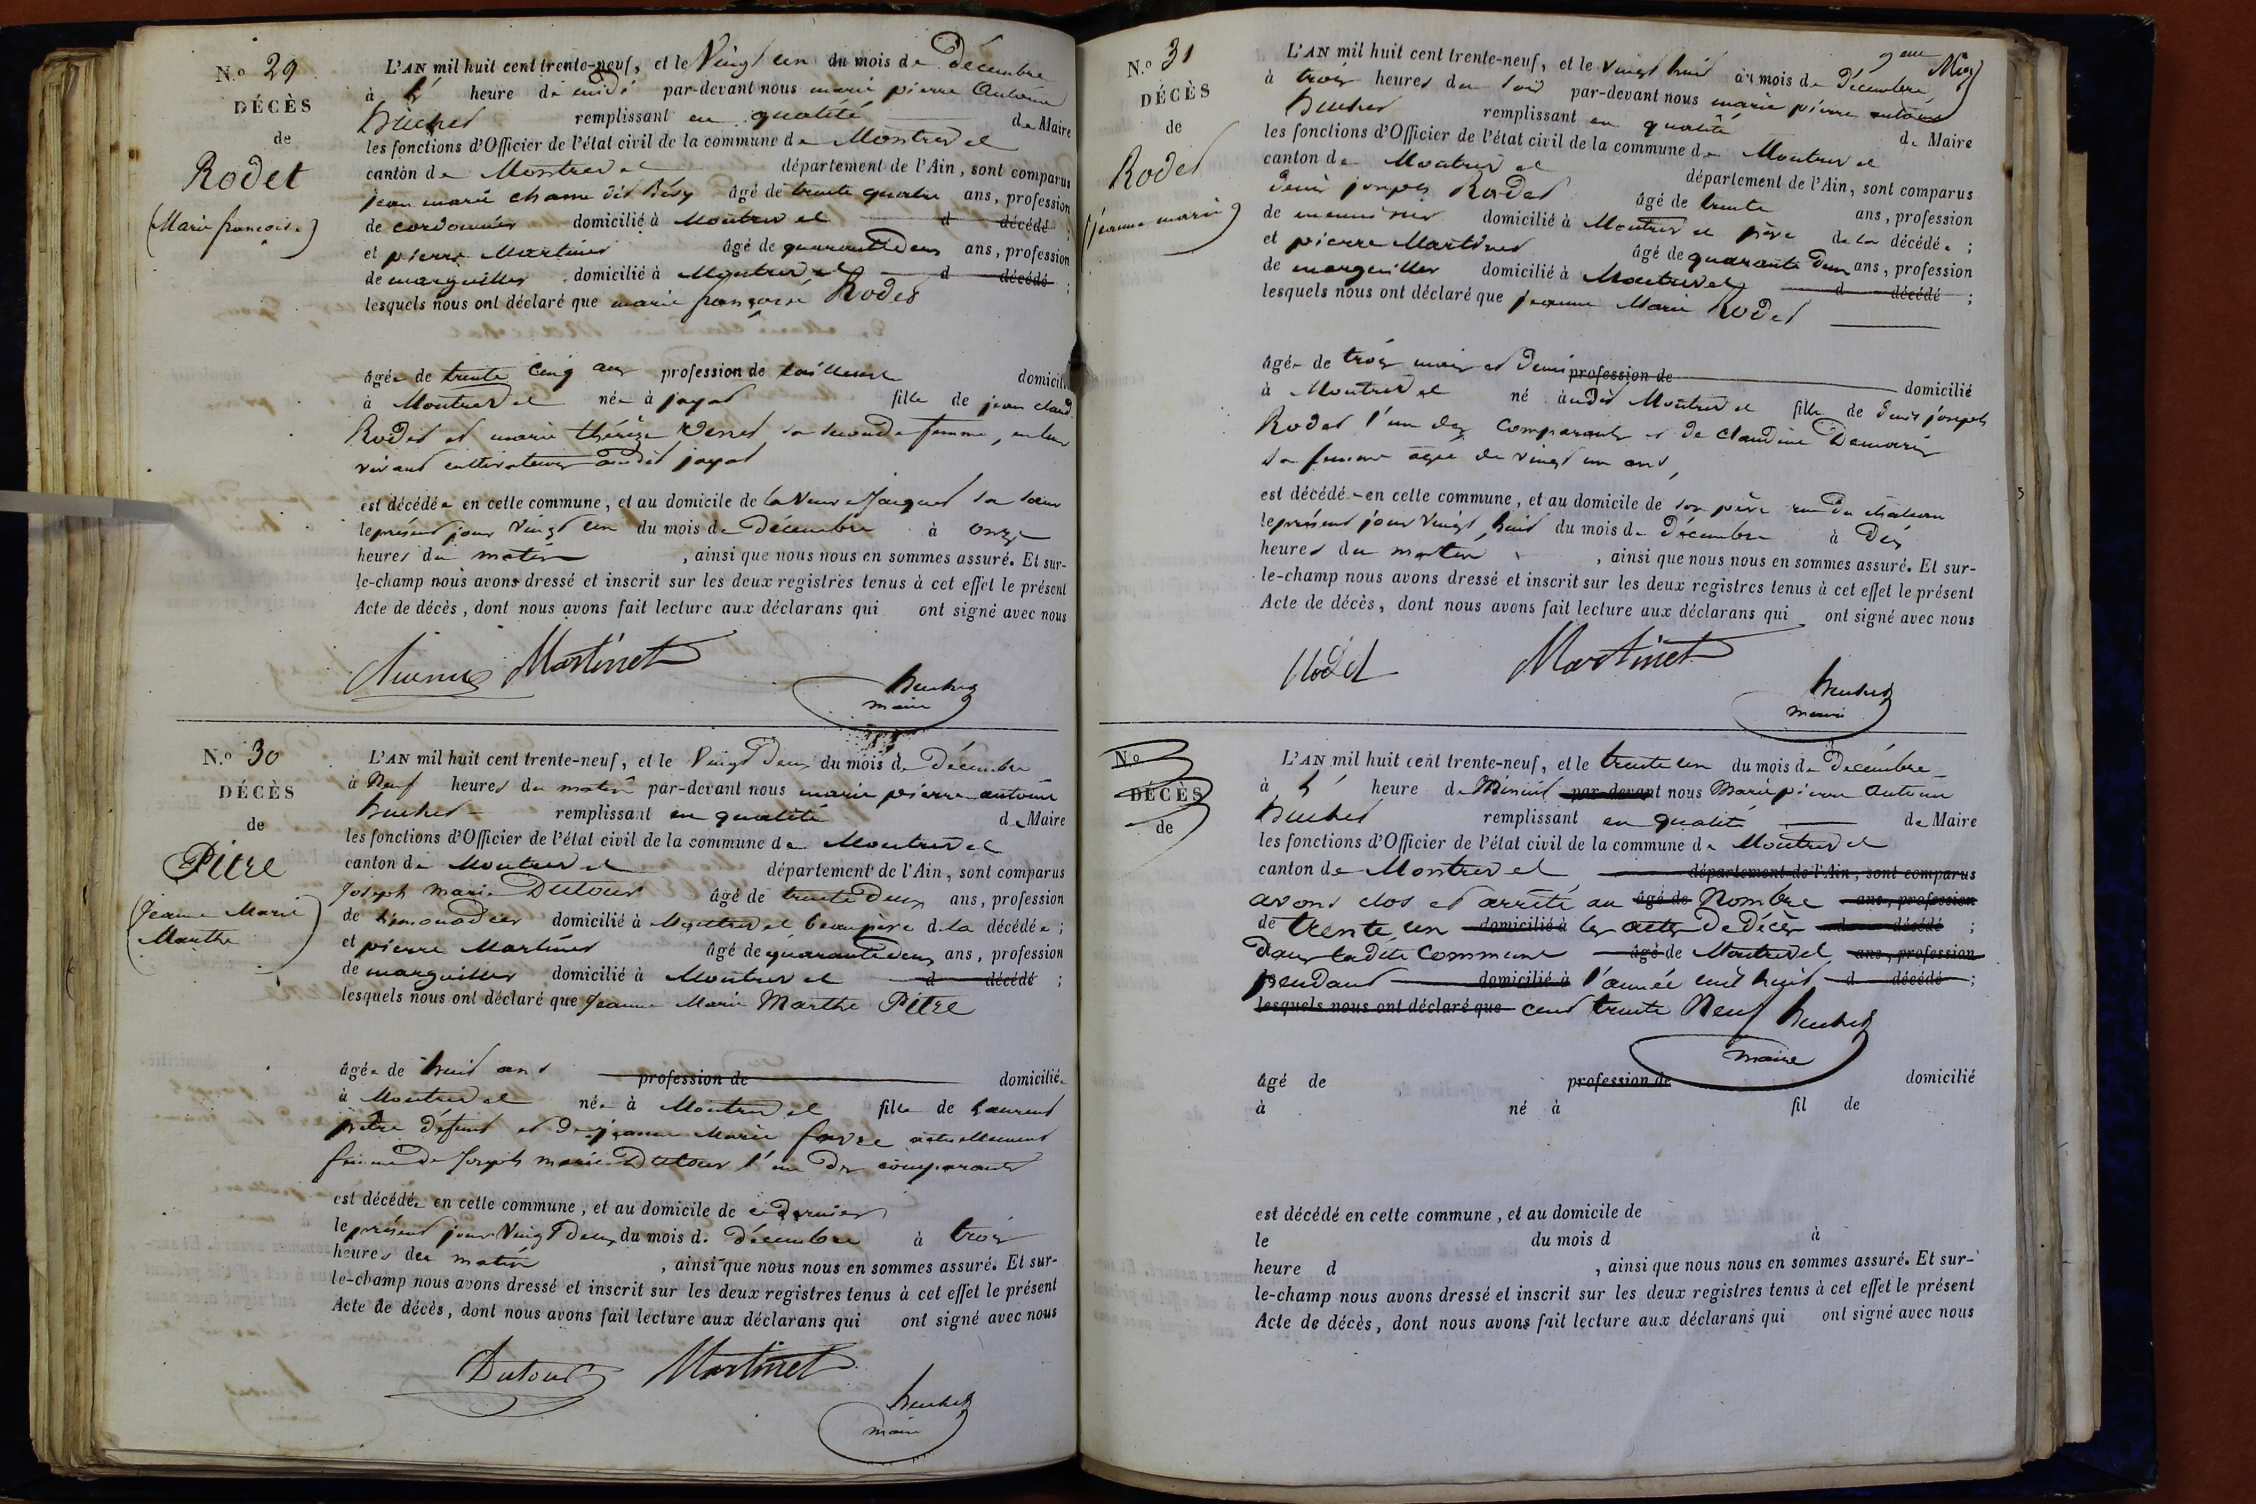 N.º 29
DÉCÈS
de
Rodet
(Marie françoise)
L'AN mil huit cent trente-neuf, et le Vingt un du mois de Décembre
à l' heure de midi par-devant nous marie pierre Antoine
huchet remplissant en qualité de Maire
les fonctions d'Officier de l'état civil de la commune de Montrevel
canton de Montrevel département de l'Ain, sont comparus
jean marie dit âgé de trente quatre ans, profession
de cordonnier domicilié à Montrevel d décédé ;
et pierre Martinet âgé de quarante deux ans, profession
de marguillier domicilié à Montrevel d décédé ;
lesquels nous ont déclaré que marie françoise Rodet
âgée de trente cinq ans profession de tailleuse domicilié
à Montrevel née à jayat fille de jean claude
Rodet et marie thérèze sa seconde femme, en leur
vivant cultivateurs audit jayat
est décédée en cette commune, et au domicile de la Veuve Jacquet sa sœur
le présent jour vingt un du mois de Décembre à onze
heures du matin , ainsi que nous nous en sommes assuré. Et sur-
le-champ nous avons dressé et inscrit sur les deux registres tenus à cet effet le présent
Acte de décès, dont nous avons fait lecture aux déclarans qui ont signé avec nous
Martinet
huchet
maire
N.º 30
DÉCÈS
de
Pitre
(Jeanne Marie
Marthe)
L'AN mil huit cent trente-neuf, et le Vingt Deux du mois de Décembre
à Neuf heures du matin par-devant nous marie pierre antoine
huchet remplissant en qualité de Maire
les fonctions d'Officier de l'état civil de la commune de Montrevel
canton de Montrevel département de l'Ain, sont comparus
Joseph marie Dutour âgé de trente Deux ans, profession
de limonadier domicilié à Montrevel beaupère de la décédée ;
et pierre Martinet âgé de quarante deux ans, profession
de marguillier domicilié à Montrevel d décédé ;
lesquels nous ont déclaré que Jeanne Marie Marthe Pitre
âgée de huit ans profession de domicilié
à Montrevel née à Montrevel fille de Laurent
pitre défunt et de jeanne Marie favre actuellement
femme de Joseph marie Dutour l'un des comparants
est décédée en cette commune, et au domicile de ce dernier
le présent jour Vingt Deux du mois de Décembre à trois
heures du matin , ainsi que nous nous en sommes assuré. Et sur-
le-champ nous avons dressé et inscrit sur les deux registres tenus à cet effet le présent
Acte de décès, dont nous avons fait lecture aux déclarans qui ont signé avec nous
Dutour Martinet
huchet
maire
N.º 31
DÉCÈS
de
Rodet
(jeanne marie)
L'AN mil huit cent trente-neuf, et le vingt huit du mois de Décembre
à trois heures du soir par-devant nous marie pierre antoine
huchet remplissant en qualité de Maire
les fonctions d'Officier de l'état civil de la commune de Montrevel
canton de Montrevel département de l'Ain, sont comparus
denis joseph Rodet âgé de trente ans, profession
de menuisier domicilié à Montrevel père de la décédée ;
et pierre Martinet âgé de quarante Deux ans, profession
de marguillier domicilié à Montrevel d décédé ;
lesquels nous ont déclaré que jeanne Marie Rodet
âgée de trois mois et demi profession de domicilié
à Montrevel né audit Montrevel fille de denis joseph
Rodet l'un des comparants et de claudine
sa femme agée de vingt un ans,
est décédée en cette commune, et au domicile de son père rue du château
le présent jour vingt huit du mois de Décembre à Dix
heures du matin , ainsi que nous nous en sommes assuré. Et sur-
le-champ nous avons dressé et inscrit sur les deux registres tenus à cet effet le présent
Acte de décès, dont nous avons fait lecture aux déclarans qui ont signé avec nous
Rodet Martinet
huchet
maire
N.º
DÉCÈS
de
L'AN mil huit cent trente-neuf, et le trente un du mois de Decémbre
à l' heure de Minuit par-devant nous Marie pierre Antoine
huchet remplissant en qualité de Maire
les fonctions d'Officier de l'état civil de la commune de Montrevel
canton de Montrevel département de l'Ain, sont comparus
avons clos et arrêté au âgé de Nombre ans, profession
de trente un domicilié à les actes De Décès d décédé ;
Dans ladite Commune âgé de Montrevel ans, profession
pendant domicilié à l'année mil huit d décédé ;
lesquels nous ont déclaré que cent trente Neuf huchet
maire
âgé de profession de domicilié
à né à fil de
est décédé en cette commune, et au domicile de
le du mois d à
heure d , ainsi que nous nous en sommes assuré. Et sur-
le-champ nous avons dressé et inscrit sur les deux registres tenus à cet effet le présent
Acte de décès, dont nous avons fait lecture aux déclarans qui ont signé avec nous